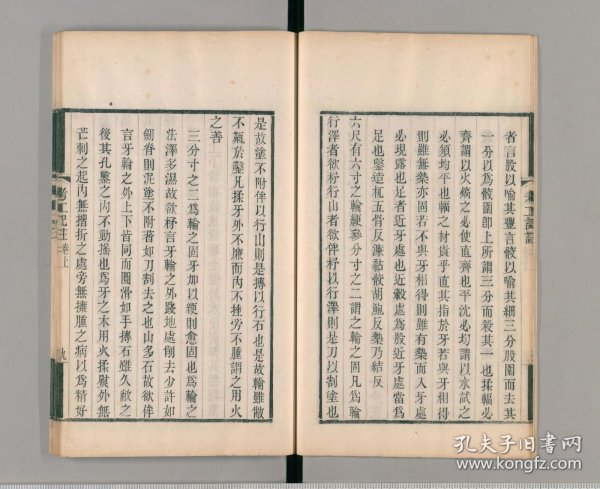 者言股以喻其豐言骹以喻其細三分股圍而去其
一分以爲骹圍卽上所謂三分而殺其一也揉輻必
齊謂以火煣之必使直齊也平沈必均謂以水試之
必須均平也輻之材貴乎直其指於牙若與牙相得
則雖無槷亦固若不與牙相得則雖有槷而入牙處
必現露也足者近牙處也近轂處爲股近牙處當爲
足也鑿造杌五骨反溓黏骹胡飽反槷乃結反
六尺有六寸之輪綆參分寸之二謂之輪之固凡爲輪
行澤者欲杼行山者欲侔杼以行澤則是刀以割塗也
是故塗不附侔以行山則是摶以行石也是故輪雖敝
不甐於鑿凡揉牙外不廉而內不挫旁不腫謂之用火
之善
三分寸之二爲輪之固牙加以綆則愈固也爲輪之
法澤多濕故欲杼言牙輪之外踐地處削去少許如
劒脊則泥塗不附著如刀割去之也山多石故欲侔
言牙輪之外上下皆同而圓滑如手摶石雖久敝之
後其孔鑿之內不動搖也爲牙之木用火揉熨外無
芒刺之起內無摺折之處旁無擁腫之病以爲精好
考工記注 卷上
九
孔夫子旧书网
www.kongfz.com